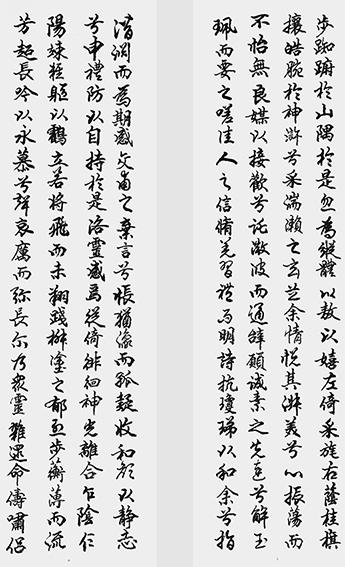 步踟躕於山隅於是忽焉縱體以敖以嬉左倚采旄右蔭桂旗
攘皓腕於神滸兮采湍瀨之玄芝余情悦其淑美兮心振蕩而
不怡無良媒以接歡兮託微波而通辭願誠素之先達兮解玉
珮而要之嗟佳人之信脩羌習禮而明詩抗瓊珶以和余兮指
潛淵而為期感交甫之棄言兮悵猶豫而狐疑收和顏以靜志
兮申禮防以自持於是洛靈感焉徙倚徘徊神光離合乍陰乍
陽竦輕軀以鶴立若將飛而未翔踐椒塗之郁烈步蘅薄而流
芳超長吟以永慕兮聲哀厲而彌長尔乃衆靈雜遝命儔嘯侶